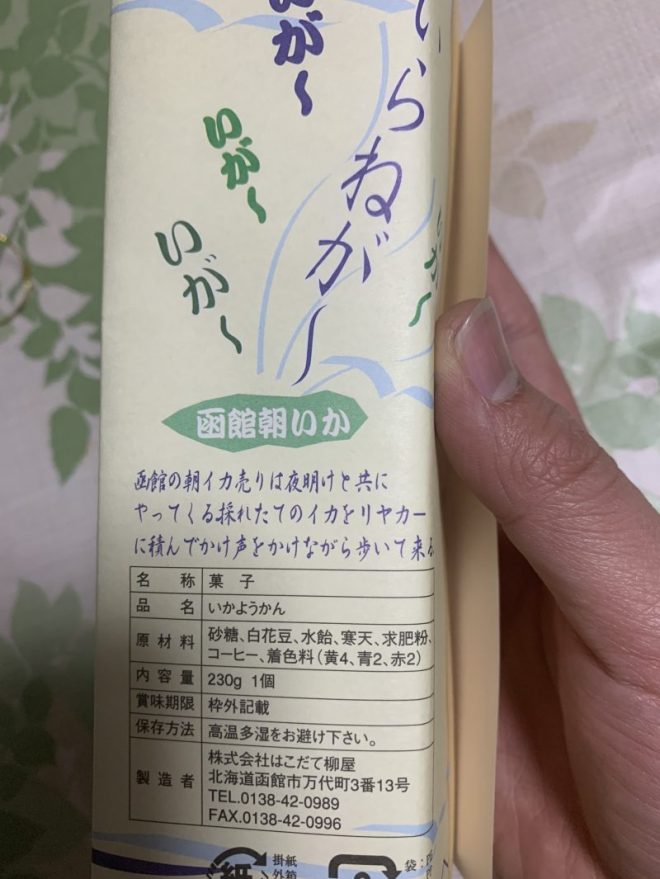 いが〜
いらねがー
いが〜
いが〜
いが〜
函館朝いか
函館の朝イカ売りは夜明けと共に
やってくる採れたてのイカをリヤカー
に積んでかけ声をかけながら歩いて来る
名称 菓子
品名 いかようかん
原材料 砂糖、白花豆、水飴、寒天、求肥粉、
コーヒー、着色料（黄4、青2、赤2）
内容量 230g 1個
賞味期限 枠外記載
保存方法 高温多湿をお避け下さい。
製造者 株式会社はこだて柳屋
北海道函館市万代町3番13号
TEL.0138-42-0989
FAX.0138-42-0996
紙
掛紙
外箱
袋: